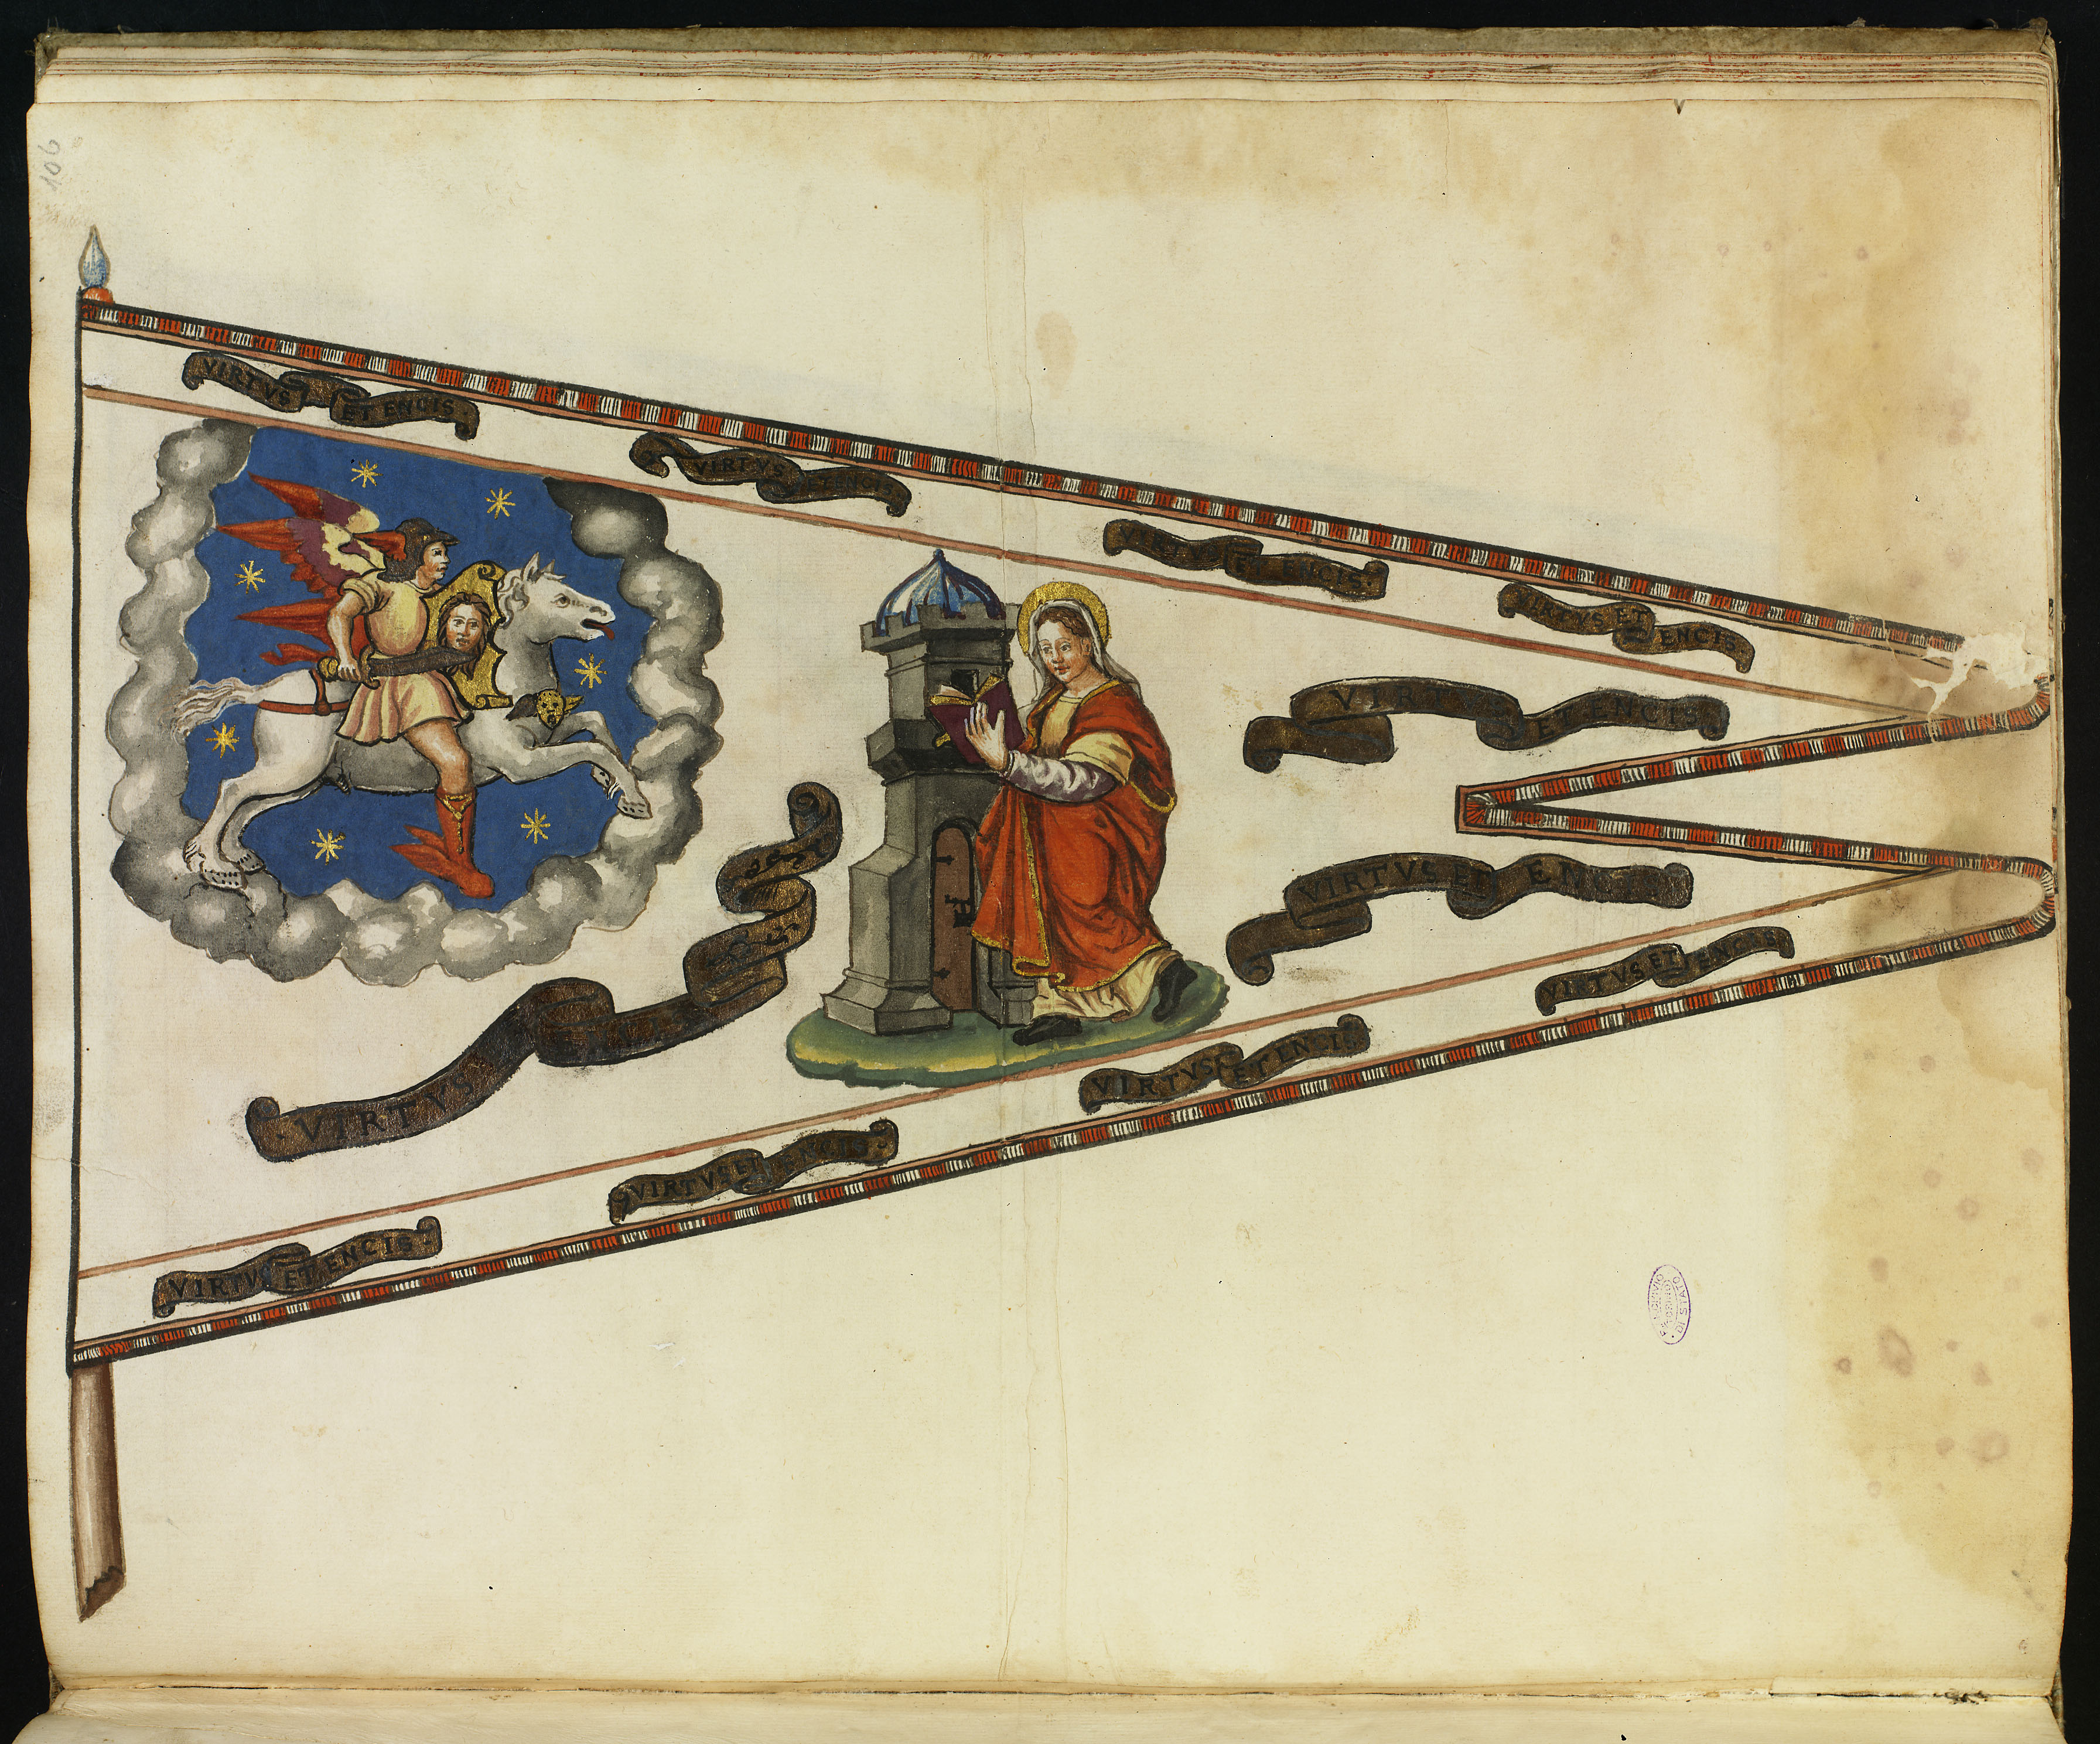 106
VIRTVS ET ENCIS
VIRTVS ET ENCIS
VIRTVS ET ENCIS
VIRTVS ET ENCIS
VIRTVS ET ENCIS
VIRTVS
VIRTVS ET ENCIS
VIRTVS ET ENCIS
VIRTVS ET ENCIS
VIRTVS ET ENCIS
VIRTVS ET ENCIS
DI STATO